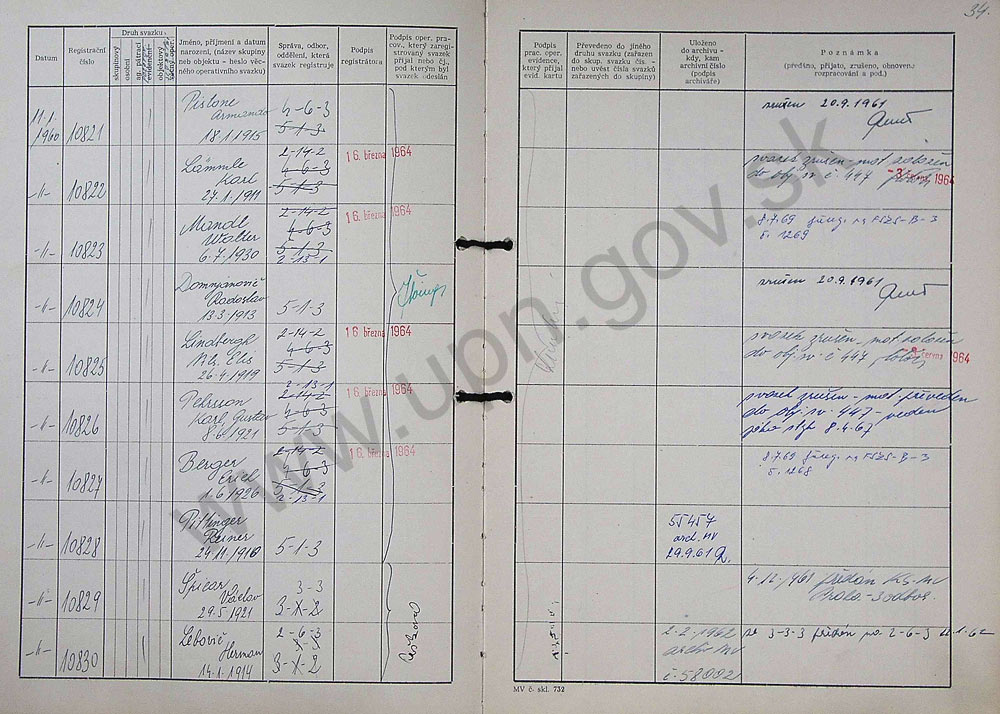 34.
Datum
Registrační číslo
Druh svazku
skupinový
osobní
ag. pátrací
evidenční
objektový
Jméno, příjmení a datum narození, (název skupiny neb objektu - heslo věcného operativního svazku)
Správa, odbor, oddělení, která svazek registruje
Podpis registrátora
Podpis oper. pracov., který zaregistrovaný svazek přijal nebo čj., pod kterým byl svazek odeslán
Podpis prac. oper. evidence, který přijal evid. kartu
Převedeno do jiného druhu svazku (zařazen do skup. svazku čís. - nebo uvést čísla svazků zařazených do skupiny)
Uloženo do archivu - kdy, kam archivní číslo (podpis archiváře)
Poznámka
(předáno, přijato, zrušeno, obnoveno, rozpracování a pod.)
11.1.
1960 10821
Pistone
Armando
18.1.1915
4-6-3
5-1-3
zrušen 20.9.1961
-"- 10822
Lämmle
Karl
27.1.1911
2-14-2
4-6-3
5-1-3
16. března 1964
svazek zrušen - mat. založen
do obj. sv. č. 447
1964
-"- 10823
Mandl
Walter
6.7.1930
2-14-2
4-6-3
5-1-3
2-13-1
16. března 1964
8.7.69
č. 1269
-"- 10824
Domnjanovič
Radoslav
13.3.1913
5-1-3
zrušen 20.9.1961
-"- 10825
Lindbergh
Nls. Els
26.4.1919
2-14-2
4-6-3
5-1-3
16. března 1964
svazek zrušen - mat. založen
do obj. sv. č. 447
června 1964
-"- 10826
Pehrsson
Karl, Gustav
8.6.1921
2-13-1
2-14-2
4-6-3
5-1-3
16. března 1964
svazek zrušen - mat. převeden
do obj. sv. 447 - veden
8.4.67
-"- 10827
Berger
Erich
1.6.1926
2-14-2
4-6-3
5-1-3
2-13-1
16. března 1964
8.7.69
č. 1268
-"- 10828
Pittinger
Reiner
24.11.1910
5-1-3
55457
arch. MV
29.9.61
-"- 10829
Špicar
Václav
29.5.1921
3-3
3-X-2
4.12.1961 předán KS-MV
-"- 10830
Lebovič
Herman
14.1.1914
2-6-3
3-X-2
2-2-1962
archiv MV
č. 58002
ze 3-3-3 předán na 2-6-3
MV č. skl. 732
www.upn.gov.sk